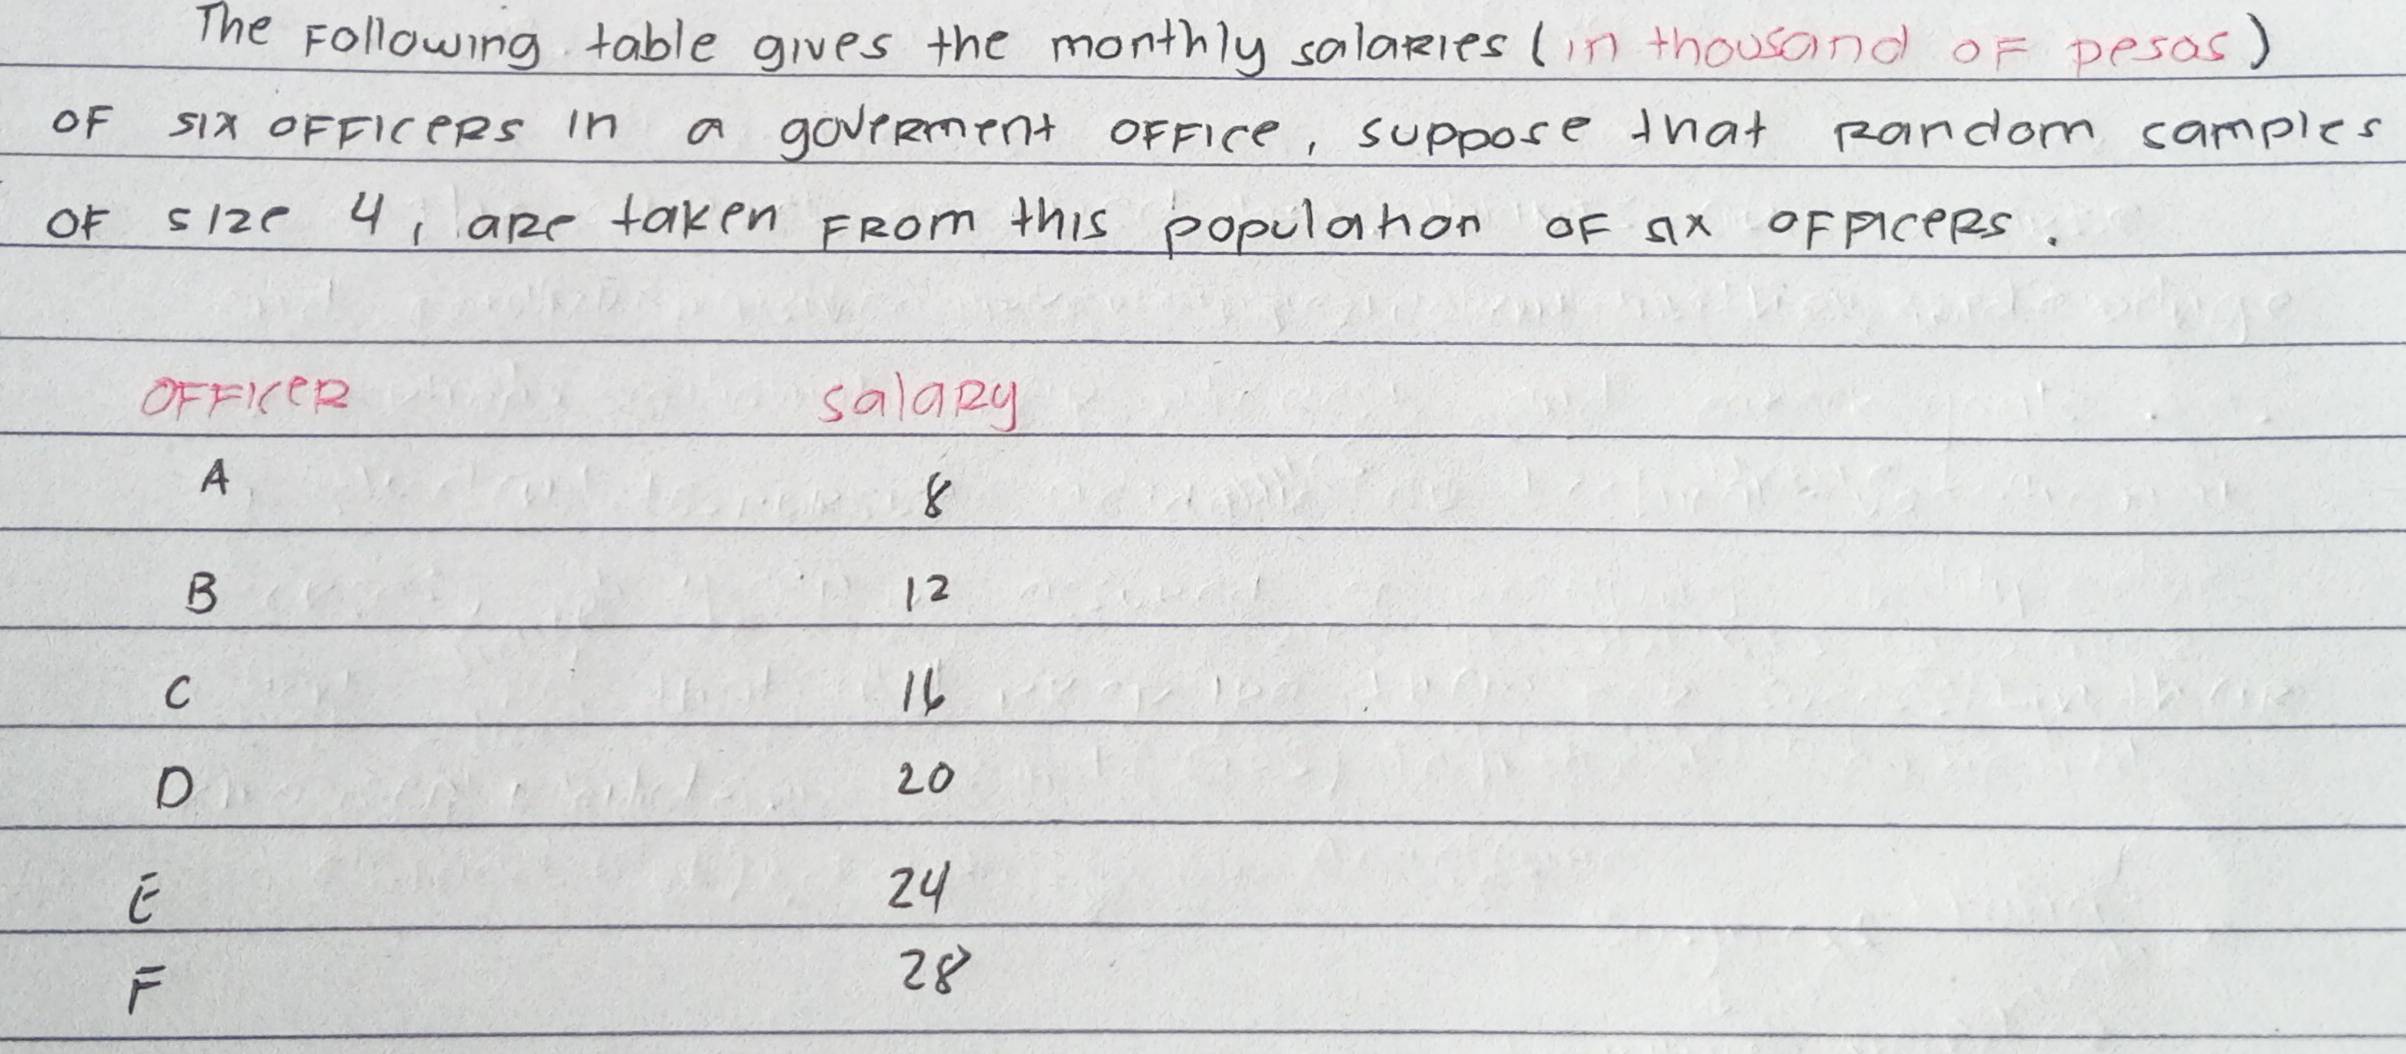 The Following table gives the monthly salaries (in thousand of pesos)
of six officers in a goverment office, suppose that random samples
of size 4, are taken from this population of six officers.
Officer Salary
A 8
B 12
C 16
D 20
E 24
F 28